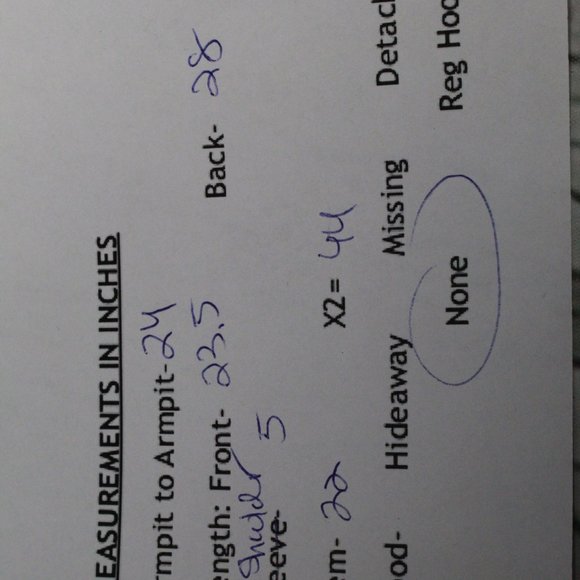 EASUREMENTS IN INCHES
rmpit to Armpit- 24
ength: Front- 23.5 Back- 28
Shulder
eeve- 5
em- 22 X2= 44
ood- Hideaway Missing Detach
None Reg Hoo